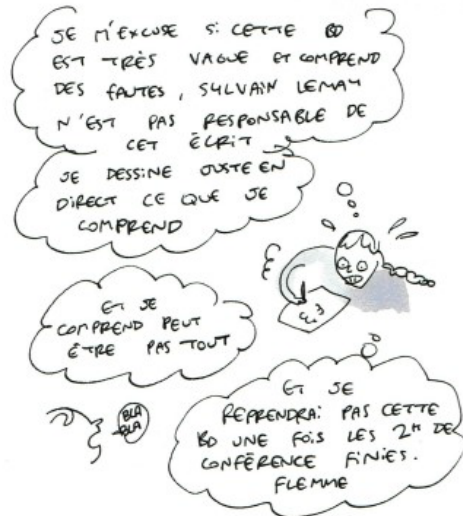 JE M'EXCUSE Si CETTE BD
EST TRÈS VAGUE ET COMPREND
DES FAUTES, SYLVAIN LEMAY
N'EST PAS RESPONSABLE DE
CET ÉCRIT
JE DESSINE JUSTE EN
DIRECT CE QUE JE
COMPREND
ET JE
COMPREND PEUT
ÊTRE PAS TOUT
BLA
BLA
ET JE
REPRENDRAi PAS CETTE
BD UNE FOiS LES 2H DE
CONFÉRENCE FiNiES.
FLEMME